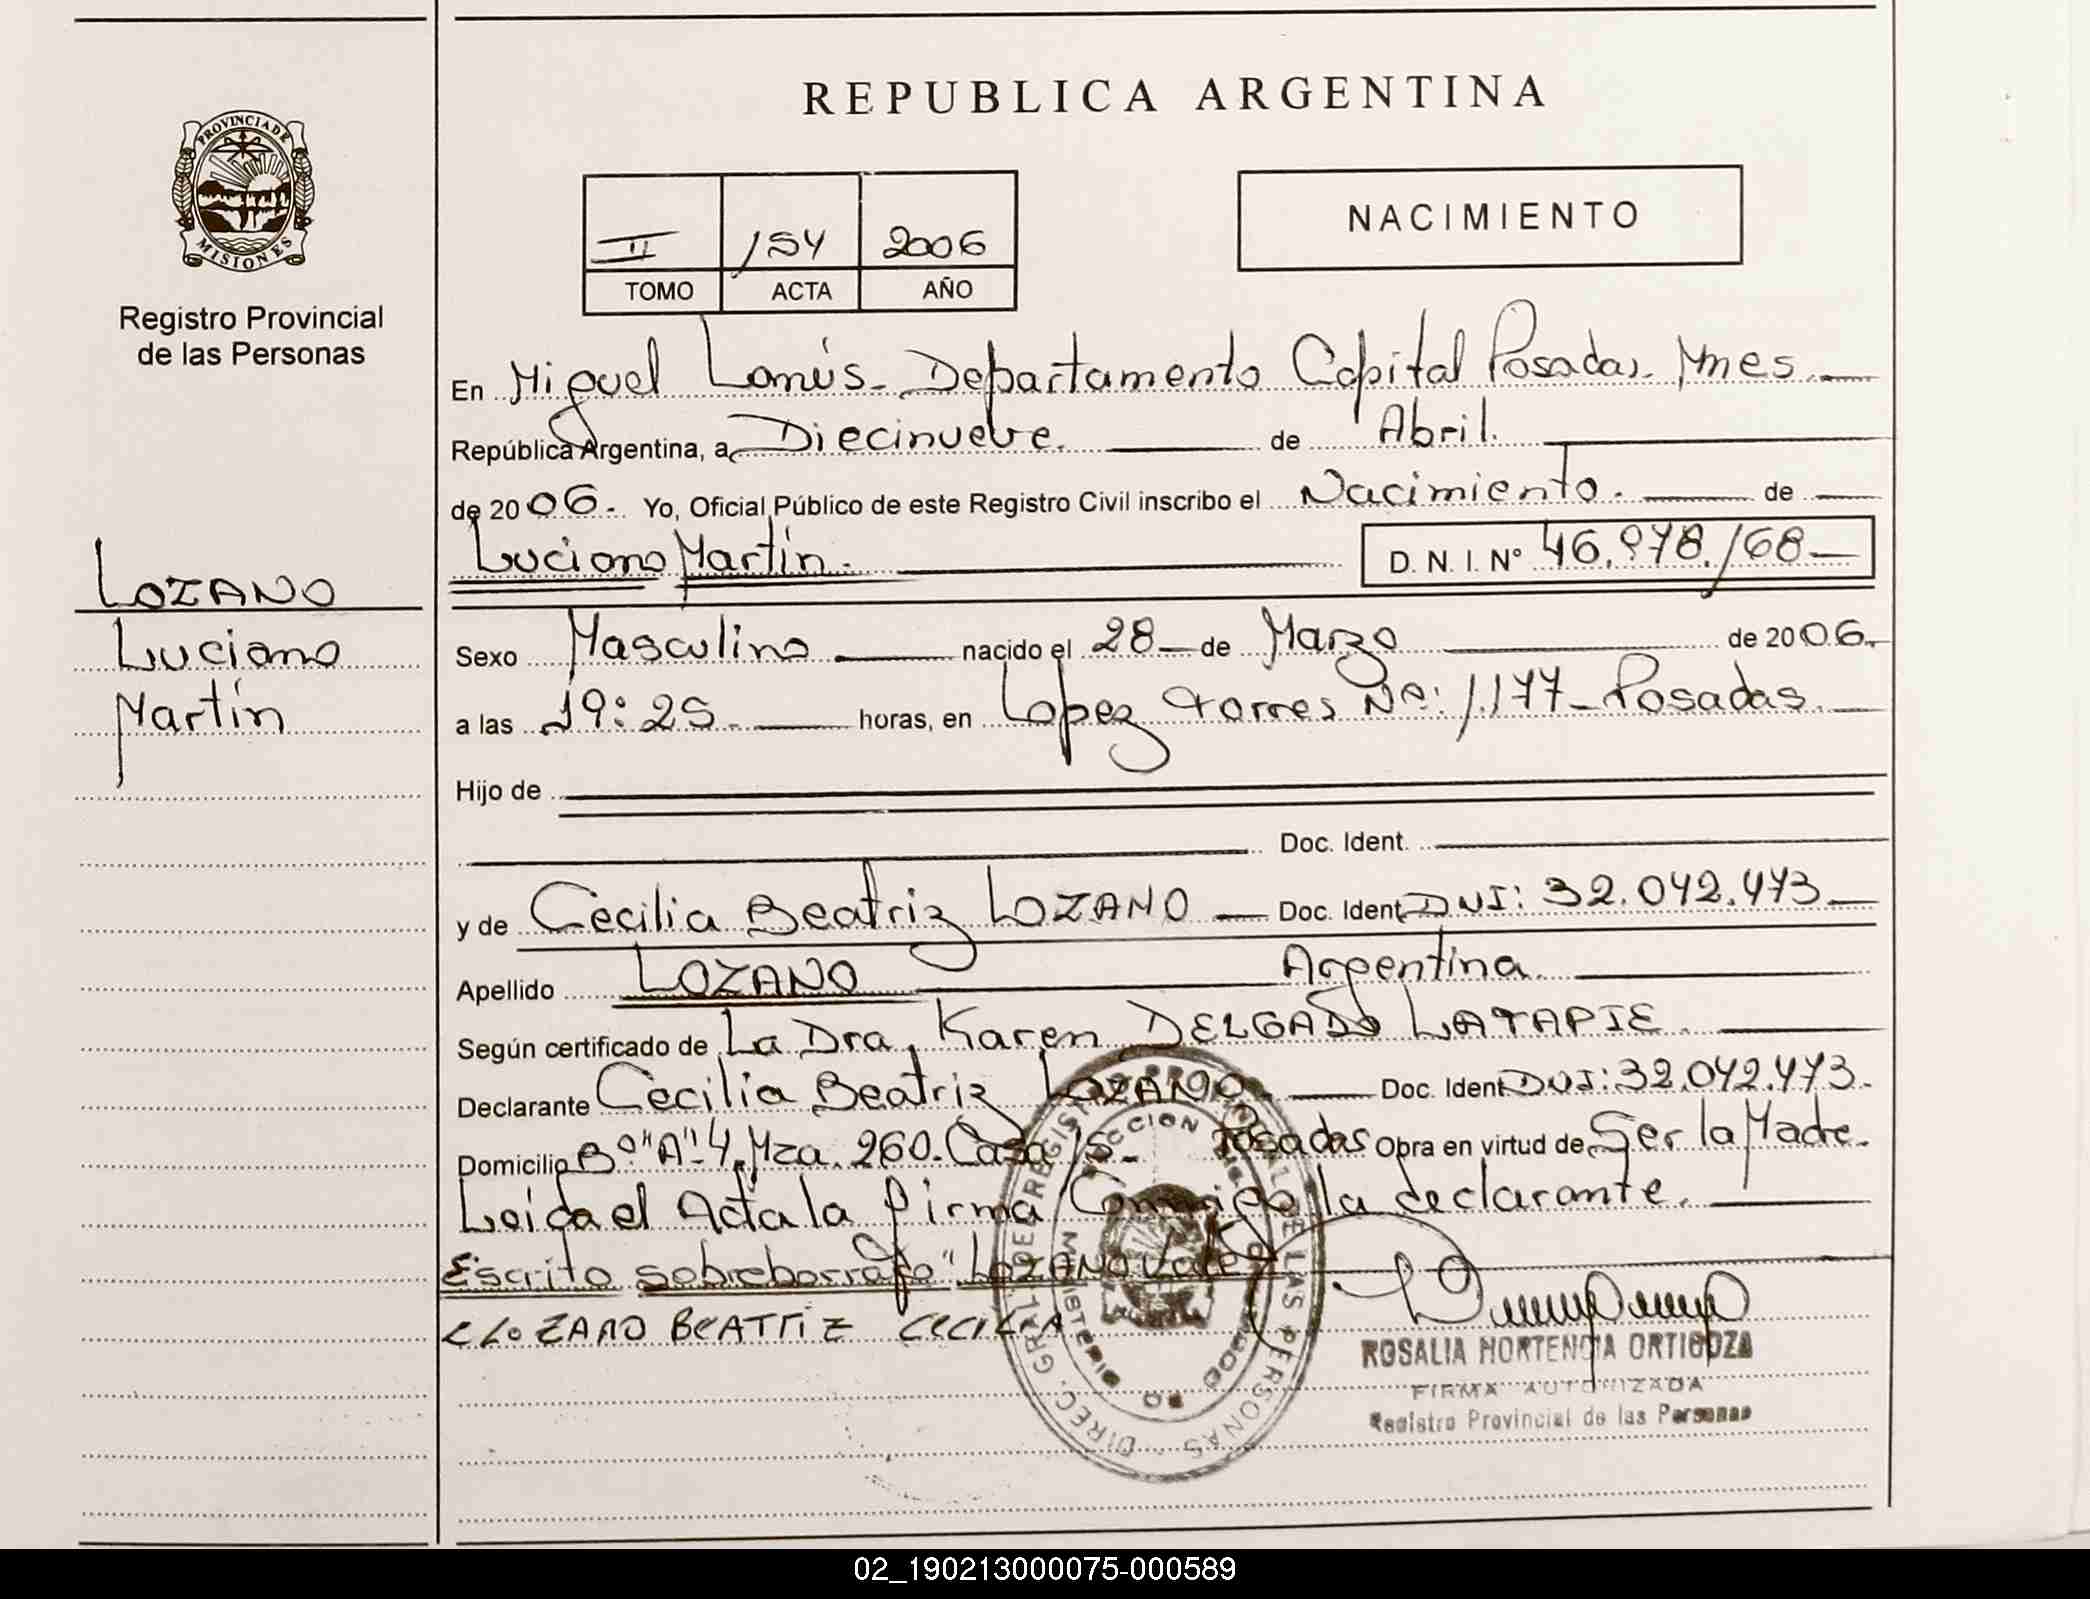 REPUBLICA ARGENTINA
PROVINCIA DE
MISIONES
Registro Provincial
de las Personas
II 154 2006
TOMO ACTA AÑO
NACIMIENTO
En Miguel Lanús. Departamento Capital Posadas. Mnes.
República Argentina, a Diecinueve. de Abril.
de 2006. Yo, Oficial Público de este Registro Civil inscribo el Nacimiento. de
Luciano Martín. D. N. I. Nº 46.978.168
LOZANO
Luciano
Martín
Sexo Masculino nacido el 28 de Marzo de 2006.
a las 19:25. horas, en Lopez Torres Nº: 1.177 - Posadas.
Hijo de
Doc. Ident.
y de Cecilia Beatriz LOZANO Doc. Ident DNI: 32.042.473
Apellido LOZANO Argentina.
Según certificado de La Dra. Karen DELGADO LATAPIE.
Declarante Cecilia Beatriz LOZANO. Doc. Ident DNI: 32.042.473.
Domicilio Bº "A"-4. Mza. 260. Casa 15. Posadas Obra en virtud de Ser la Madre.
Leida el Acta la firma Conmigo la declarante.
Escrito sobreborrado "LOZANO" Vale
LOZANO BEATRIZ CECILIA
ROSALIA HORTENCIA ORTIGOZA
FIRMA AUTORIZADA
Registro Provincial de las Personas
DIREC. GRAL. DEL REGISTRO PROVINCIAL DE LAS PERSONAS
02_190213000075-000589